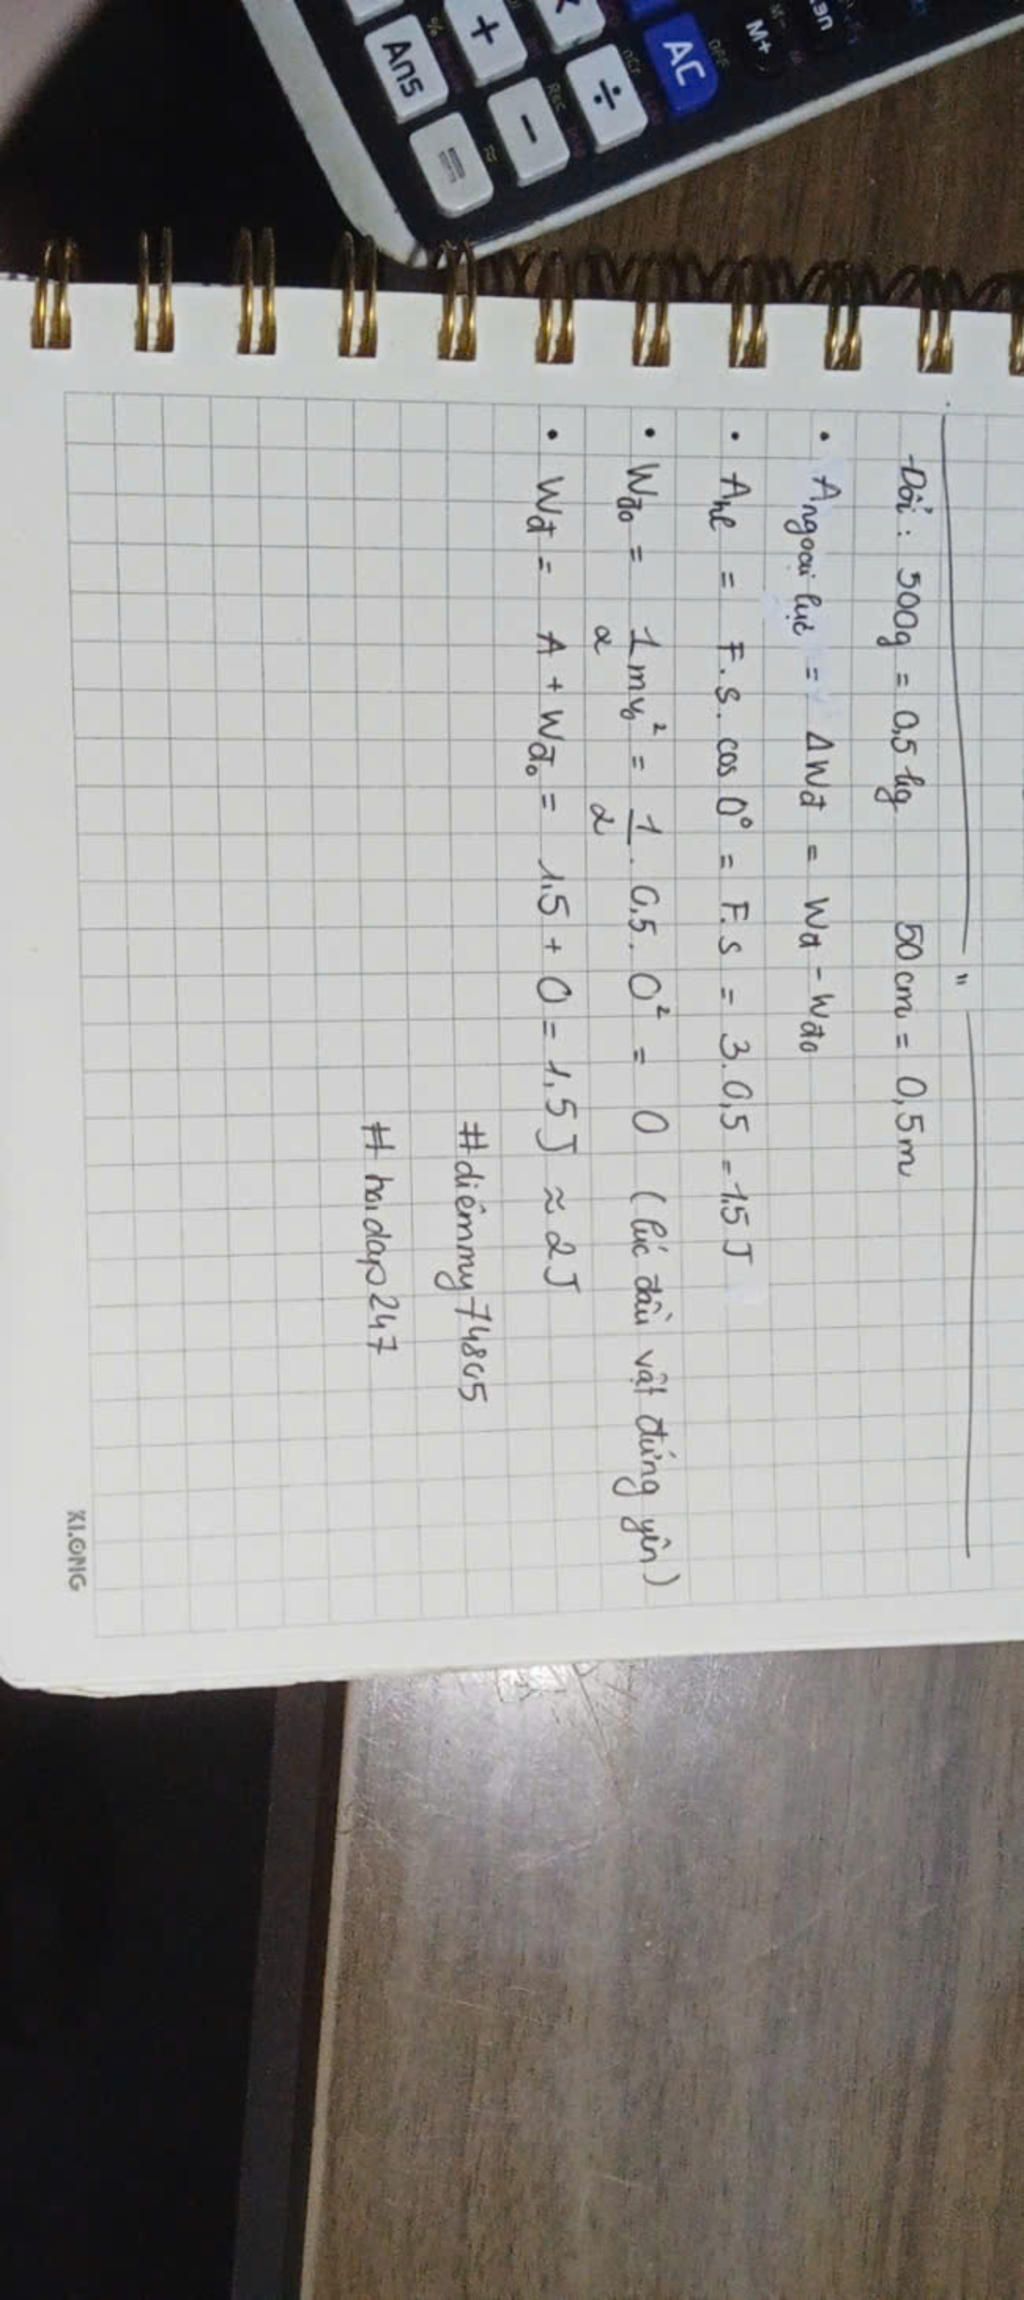 AC
M+
÷
+
-
Ans
=
%
Rec
"
-Đổi: 500g = 0,5 kg 50 cm = 0,5m
• Angoại lực = ΔWđ = Wđ - Wđ0
• Anl = F.s.cos 0° = F.s = 3.0,5 = 1,5 J
• Wđ0 = 1/2 mv0² = 1/2 . 0,5. 0² = 0 (lúc đầu vật đứng yên)
• Wđ = A + Wđ0 = 1,5 + 0 = 1,5 J ≈ 2 J
#diễmmy74805
#hoidap247
KLONG